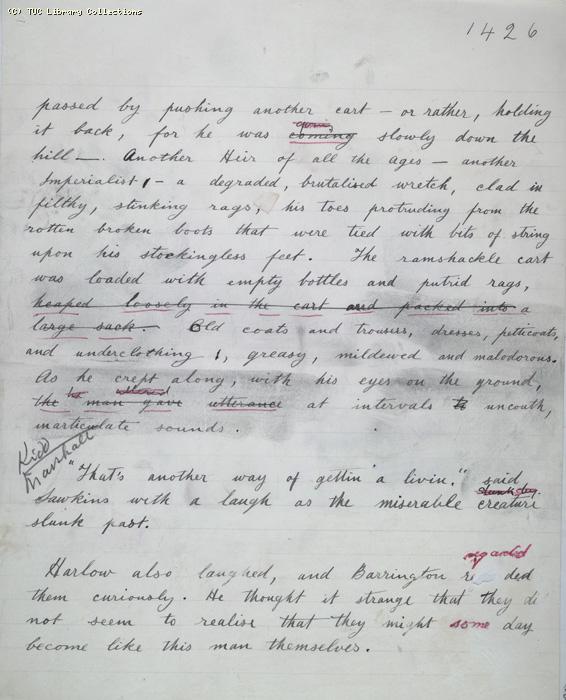 (C) TUC Library Collections
1426
passed by pushing another cart – or rather, holding
going
it back, for he was coming slowly down the
hill –. Another Heir of all the ages – another
Imperialist, – a degraded, brutalised wretch, clad in
filthy, stinking rags, his toes protruding from the
rotten broken boots that were tied with bits of string
upon his stockingless feet. The ramshackle cart
was loaded with empty bottles and putrid rags,
heaped loosely in the cart and packed into a
large sack. Old coats and trousers, dresses, petticoats,
and underclothing, greasy, mildewed and malodorous.
As he crept along, with his eyes on the ground,
he uttered
the man gave utterance at intervals to uncouth,
inarticulate sounds.
Kidd
Marshall
"That's another way of gettin' a livin'." said
Sawkins with a laugh as the miserable creature
slunk past.
regarded
Harlow also laughed, and Barrington re ded
them curiously. He thought it strange that they di
not seem to realise that they might some day
become like this man themselves.